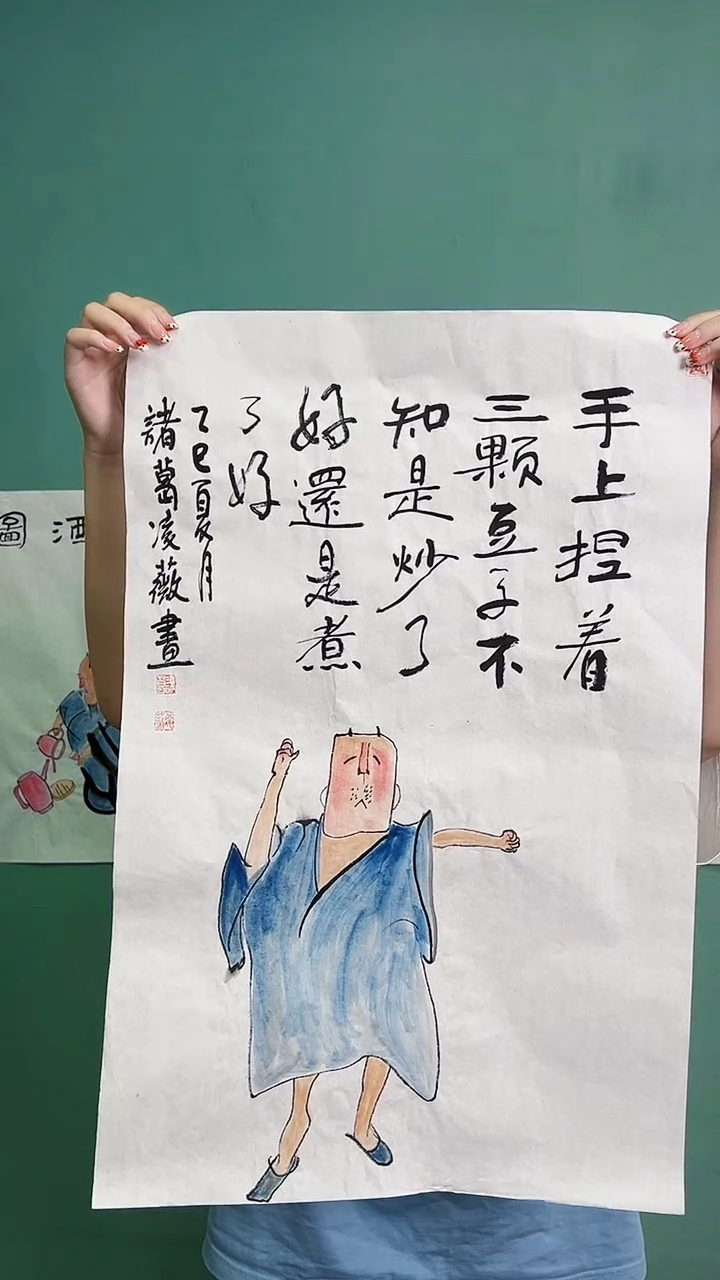 手上捏着
三颗豆子不
知是炒了
好還是煮
了好
乙巳夏月
諸葛凌薇畫
酒
圖